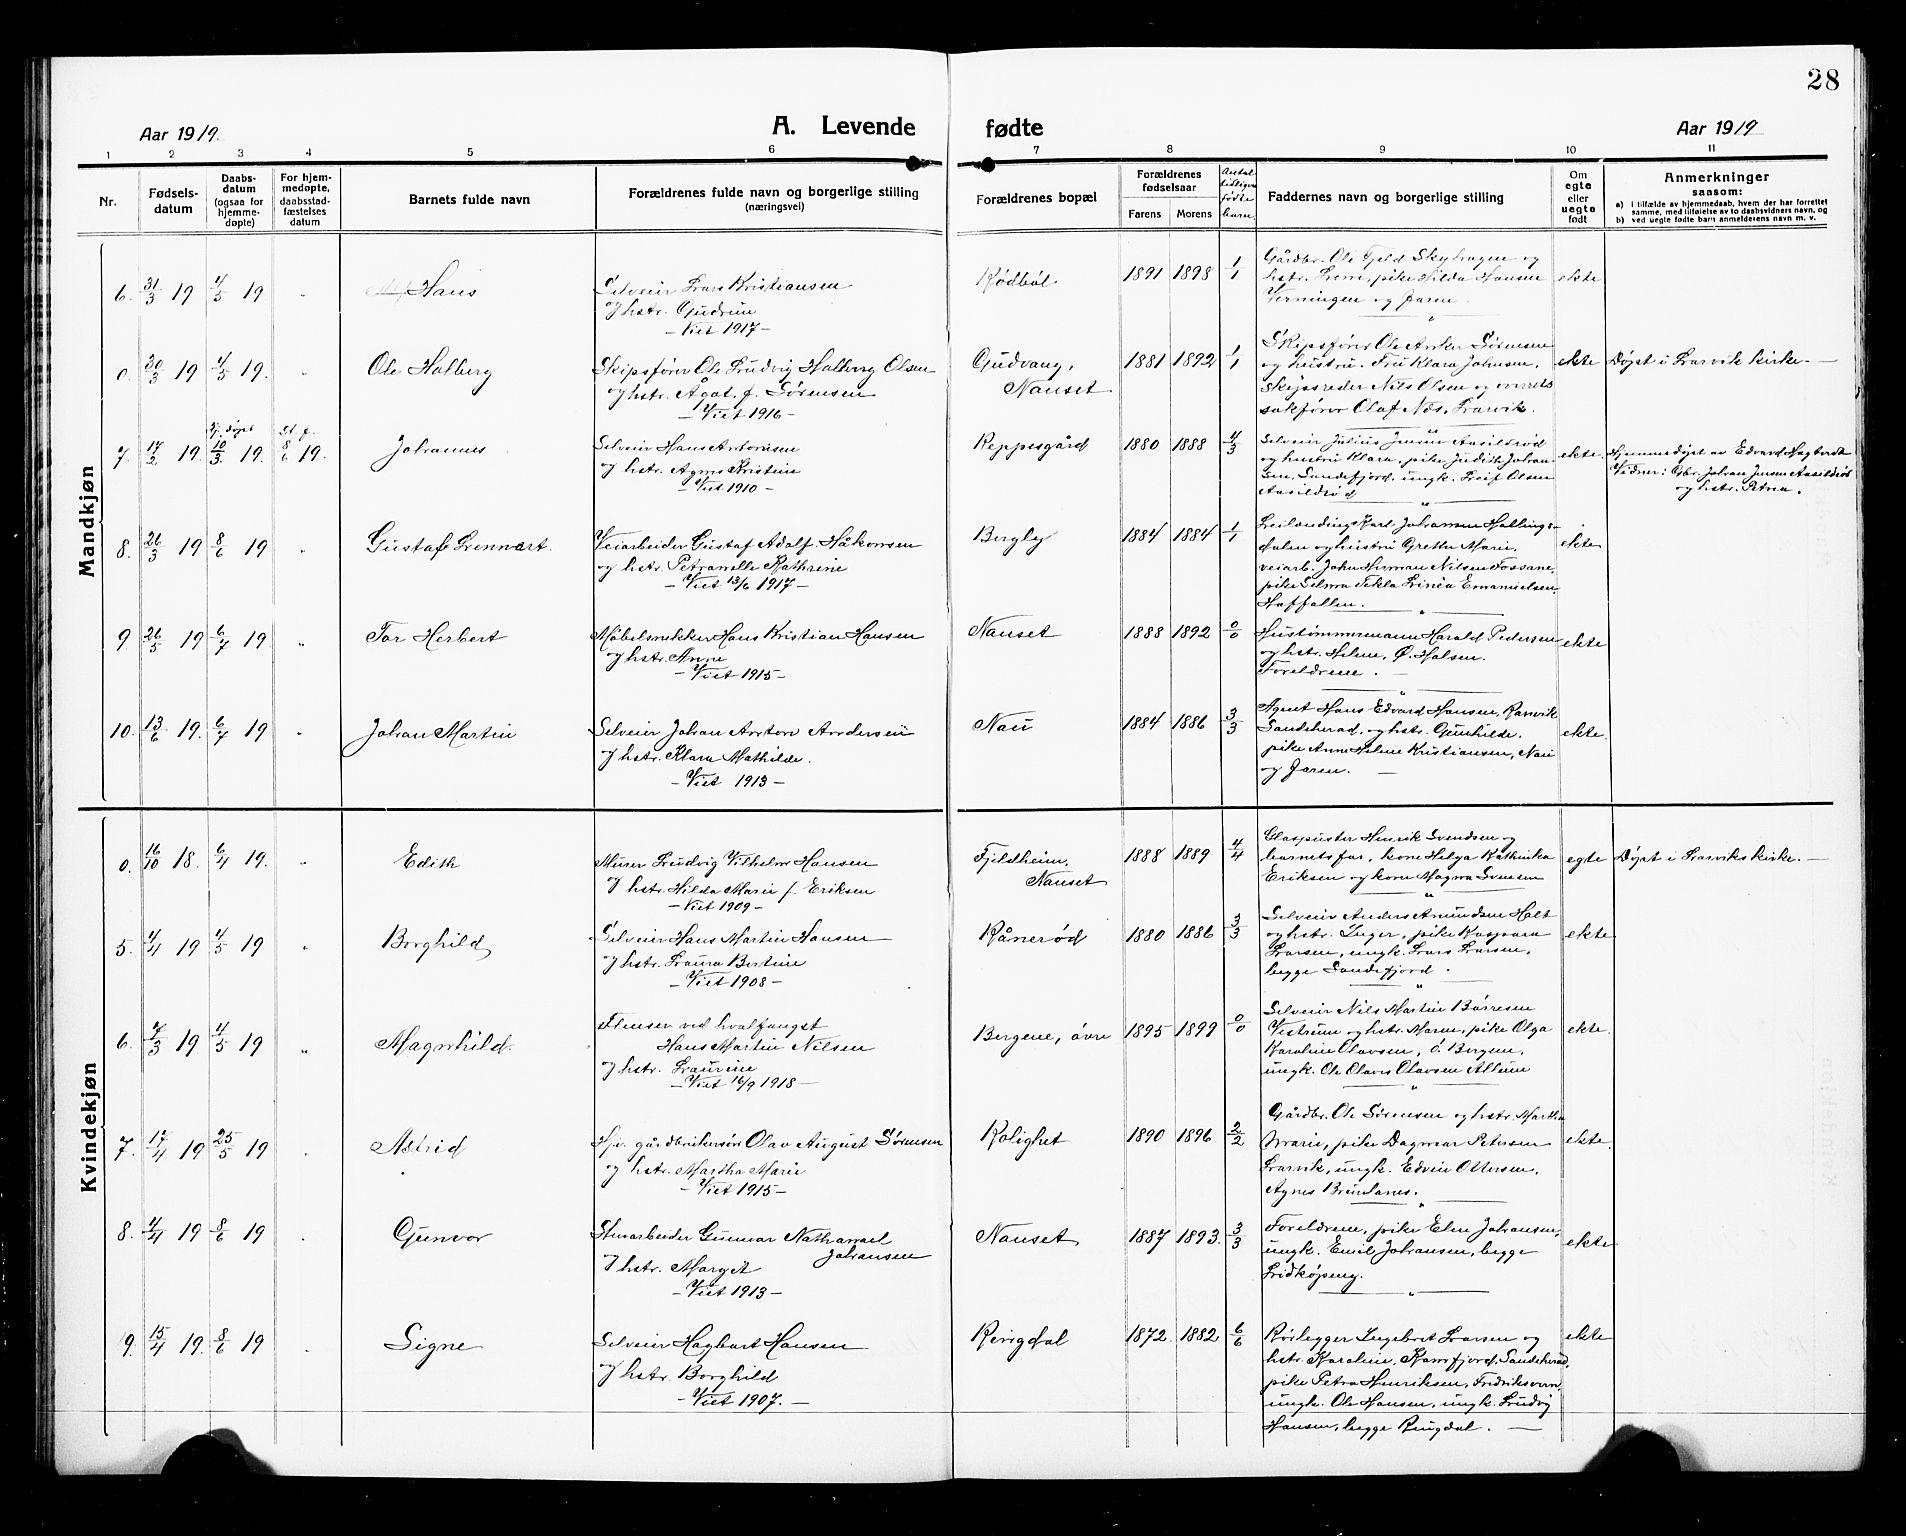 28
Aar 1919.
A. Levende
fødte
Aar 1919
1 2 3 4 5 6 7 8 9 10 11
Nr.
Fødsels-
datum
Daabs-
datum
(ogsaa for
hjemme-
døpte)
For hjem-
medøpte,
daabsstad-
fæstelses
datum
Barnets fulde navn
Forældrenes fulde navn og borgerlige stilling
(næringsvei)
Forældrenes bopæl
Forældrenes
fødselsaar
Farens Morens
Antal
tidligere
fødte
barn.
Faddernes navn og borgerlige stilling
Om
egte
eller
uegte
født
Anmerkninger
saasom:
a) i tilfælde av hjemmedaab, hvem der har forrettet
samme, med tilføielse av to daabsvidners navn, og
b) ved uegte fødte barn anmelderens navn m. v.
Mandkjøn
6. 31/3 19 4/5 19 " Hans
Selveier Lars Kristiansen
og hstr. Gudrun
- Viet 1917 -
Rødbøl 1891 1898 1/1
Gårdbr. Ole Fjeld Skybragen og
hstr. Lerne, pike Hilda Hansen
Verningen og faren.
ekte
0. 30/3 19 4/5 19. " Ole Halberg
Skipsfører Ole Ludvig Halberg Olsen
og hstr. Ågat. f. Sørensen
- Viet 1916 -
Gudvang,
Nanset
1881 1892 1/1
Skipsfører Ole Anker Sørensen
og hustru. Fru Klara Johnsen,
skipsreder Nils Olsen og overrets
sakfører Olaf Næs, Larvik.
ekte Døpt i Larvik kirke. -
7. 17/2 19. Hj. døpt 10/3 19. St. f. 8/6 19. Johannes
Selveier Hans Antonisen
og hstr. Agnes Kristine
- Viet 1910 -
Reppesgård 1880 1888 4/3
Selveier Julius Jensen Aasildrød
og hustru Klara, pike Judith Johan-
sen, Sandefjord, ungk. Leif Olsen
Aasildrød
ekte. Hjemmedøpt av Edvard Hagbardt
Vidner: Gbr. Johan Jensen Aasildrød
og hstr. Petrea.
8. 26/3 19 8/6 19 " Gustaf Lennart.
Veiarbeider Gustaf Adolf Håkonsen
og hstr. Petranelle Kathrine
- Viet 13/6 1917 -
Bergly 1884 1884 1/1
Leilending Karl Johansen Halling-
dalen og hustru Grethe Marie,
veiarb. John Herman Nilsen Fossane,
pike Selma Tekla Linéa Emanuelsen,
Haffallen.
ekte
9. 26/5 19 6/7 19 " Tor Herbert
Møbelsnekker Hans Kristian Hansen
og hstr. Anne
- Viet 1915 -
Nanset 1888 1892 0/0
Hustømmermann Harald Pedersen
og hstr. Helene, Ø. Halsen.
Foreldrene. -
ekte
10. 13/6 19. 6/7 19 " Johan Martin
Selveier Johan Anton Andersen
og hstr. Klara Mathilde.
- Viet 1913 -
Nau 1884 1886 3/3
Agent Hans Edvard Hansen, Ranvik
Sandeherad, og hstr. Gunhilde,
pike Anne Helene Kristiansen, Nau
og faren. -
ekte.
Kvindekjøn
0. 16/10 18. 6/4 19. " Edith
Murer Ludvig Vilhelm Hansen
og hstr. Hilda Marie f. Eriksen
- Viet 1909 -
Fjeldheim,
Nanset
1888 1889 4/4
Glaspuster Henrik Svendsen og
barnets far, kone Helga Kathinka
Eriksen og kone Magna Svensen
egte Døpt i Larviks kirke. -
5. 4/4 19 4/5 19 " Borghild
Selveier Hans Martin Hansen
og hstr. Laura Bertine
- Viet 1908 -
Rånerød 1880 1886 3/3
Selveier Anders Amundsen Holt
og hstr. Inger, pike Kaspara
Larsen, ungk. Lars Larsen,
begge Sandefjord.
ekte
6. 7/3 19 4/5 19 " Magnhild.
Flenser ved hvalfangst
Hans Martin Nilsen
og hstr. Laurine
- Viet 16/9 1918 -
Bergene, øvre 1895 1899 0/0
Selveier Nils Martin Børresen
Vestrum og hstr. Maren, pike Olga
Karoline Olavsen, ö. Bergene,
ungk. Ole Olavis Olavsen Allum
ekte.
7. 17/4 19 25/5 19 " Astrid
Hjv. gårdbrukersøn Olav August Sørensen
og hstr. Martha Marie
- Viet 1915 -
Rolighet 1890 1896 2/2
Gårdbr. Ole Sørensen og hstr. Martha
Marie, pike Dagmar Petersen
Larvik, ungk. Edvin Ottersen,
Agnes Brunlanes.
ekte
8. 4/4 19 8/6 19 " Gunvor
Stenarbeider Gunnar Nathanael
Johansen
og hstr. Margit
- Viet 1913 -
Nanset 1887 1893. 3/3
Foreldrene, pike Elen Johansen,
ungk. Emil Johansen, begge
Lidkøping.
ekte
9. 15/4 19. 8/6 19 " Signe
Selveier Hagbart Hansen
og hstr. Borghild
- Viet 1907. -
Ringdal 1872. 1882 6/6
Rørlegger Ingebret Larsen og
hstr. Karoline, Ramfjord, Sandeherad,
pike Petra Henriksen, Fredriksvern,
ungk. Ole Hansen, ungk. Ludvig
Hansen, begge Ringdal. -
ekte